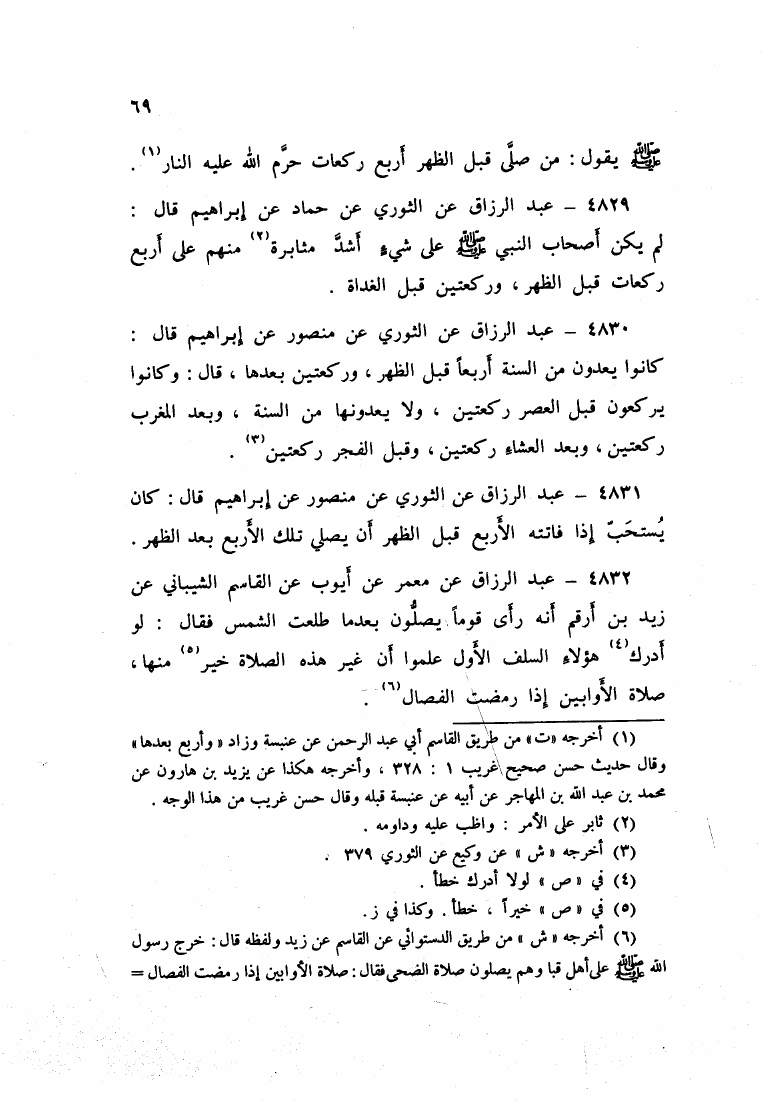 ٦٩
ﷺ يقول : من صلَّى قبل الظهر أربع ركعات حرَّم الله عليه النار(١) .
٤٨٢٩ – عبد الرزاق عن الثوري عن حماد عن إبراهيم قال :
لم يكن أصحاب النبي ﷺ على شيءٍ أشدَّ مثابرة(٢) منهم على أربع
ركعات قبل الظهر ، وركعتين قبل الغداة .
٤٨٣٠ – عبد الرزاق عن الثوري عن منصور عن إبراهيم قال :
كانوا يعدون من السنة أربعاً قبل الظهر ، وركعتين بعدها ، قال : وكانوا
يركعون قبل العصر ركعتين ، ولا يعدونها من السنة ، وبعد المغرب
ركعتين ، وبعد العشاء ركعتين ، وقبل الفجر ركعتين(٣) .
٤٨٣١ – عبد الرزاق عن الثوري عن منصور عن إبراهيم قال : كان
يُستحَبّ إذا فاتته الأربع قبل الظهر أن يصلي تلك الأربع بعد الظهر .
٤٨٣٢ – عبد الرزاق عن معمر عن أيوب عن القاسم الشيباني عن
زيد بن أرقم أنه رأى قوماً يصلُّون بعدما طلعت الشمس فقال : لو
أدرك(٤) هؤلاء السلف الأول علموا أن غير هذه الصلاة خير(٥) منها ،
صلاة الأوابين إذا رمضت الفصال(٦) .
(١) أخرجه «ت» من طريق القاسم أبي عبد الرحمن عن عنبسة وزاد « وأربع بعدها»
وقال حديث حسن صحيح غريب ١ : ٣٢٨ ، وأخرجه هكذا عن يزيد بن هارون عن
محمد بن عبد الله بن المهاجر عن أبيه عن عنبسة قبله وقال حسن غريب من هذا الوجه .
(٢) ثابر على الأمر : واظب عليه وداومه .
(٣) أخرجه « ش » عن وكيع عن الثوري ٣٧٩ .
(٤) في « ص » لولا أدرك خطأ .
(٥) في « ص » خيراً ، خطأ . وكذا في ز .
(٦) أخرجه « ش » من طريق الدستوائي عن القاسم عن زيد ولفظه قال : خرج رسول
الله ﷺ على أهل قبا وهم يصلون صلاة الضحى فقال : صلاة الأوابين إذا رمضت الفصال =